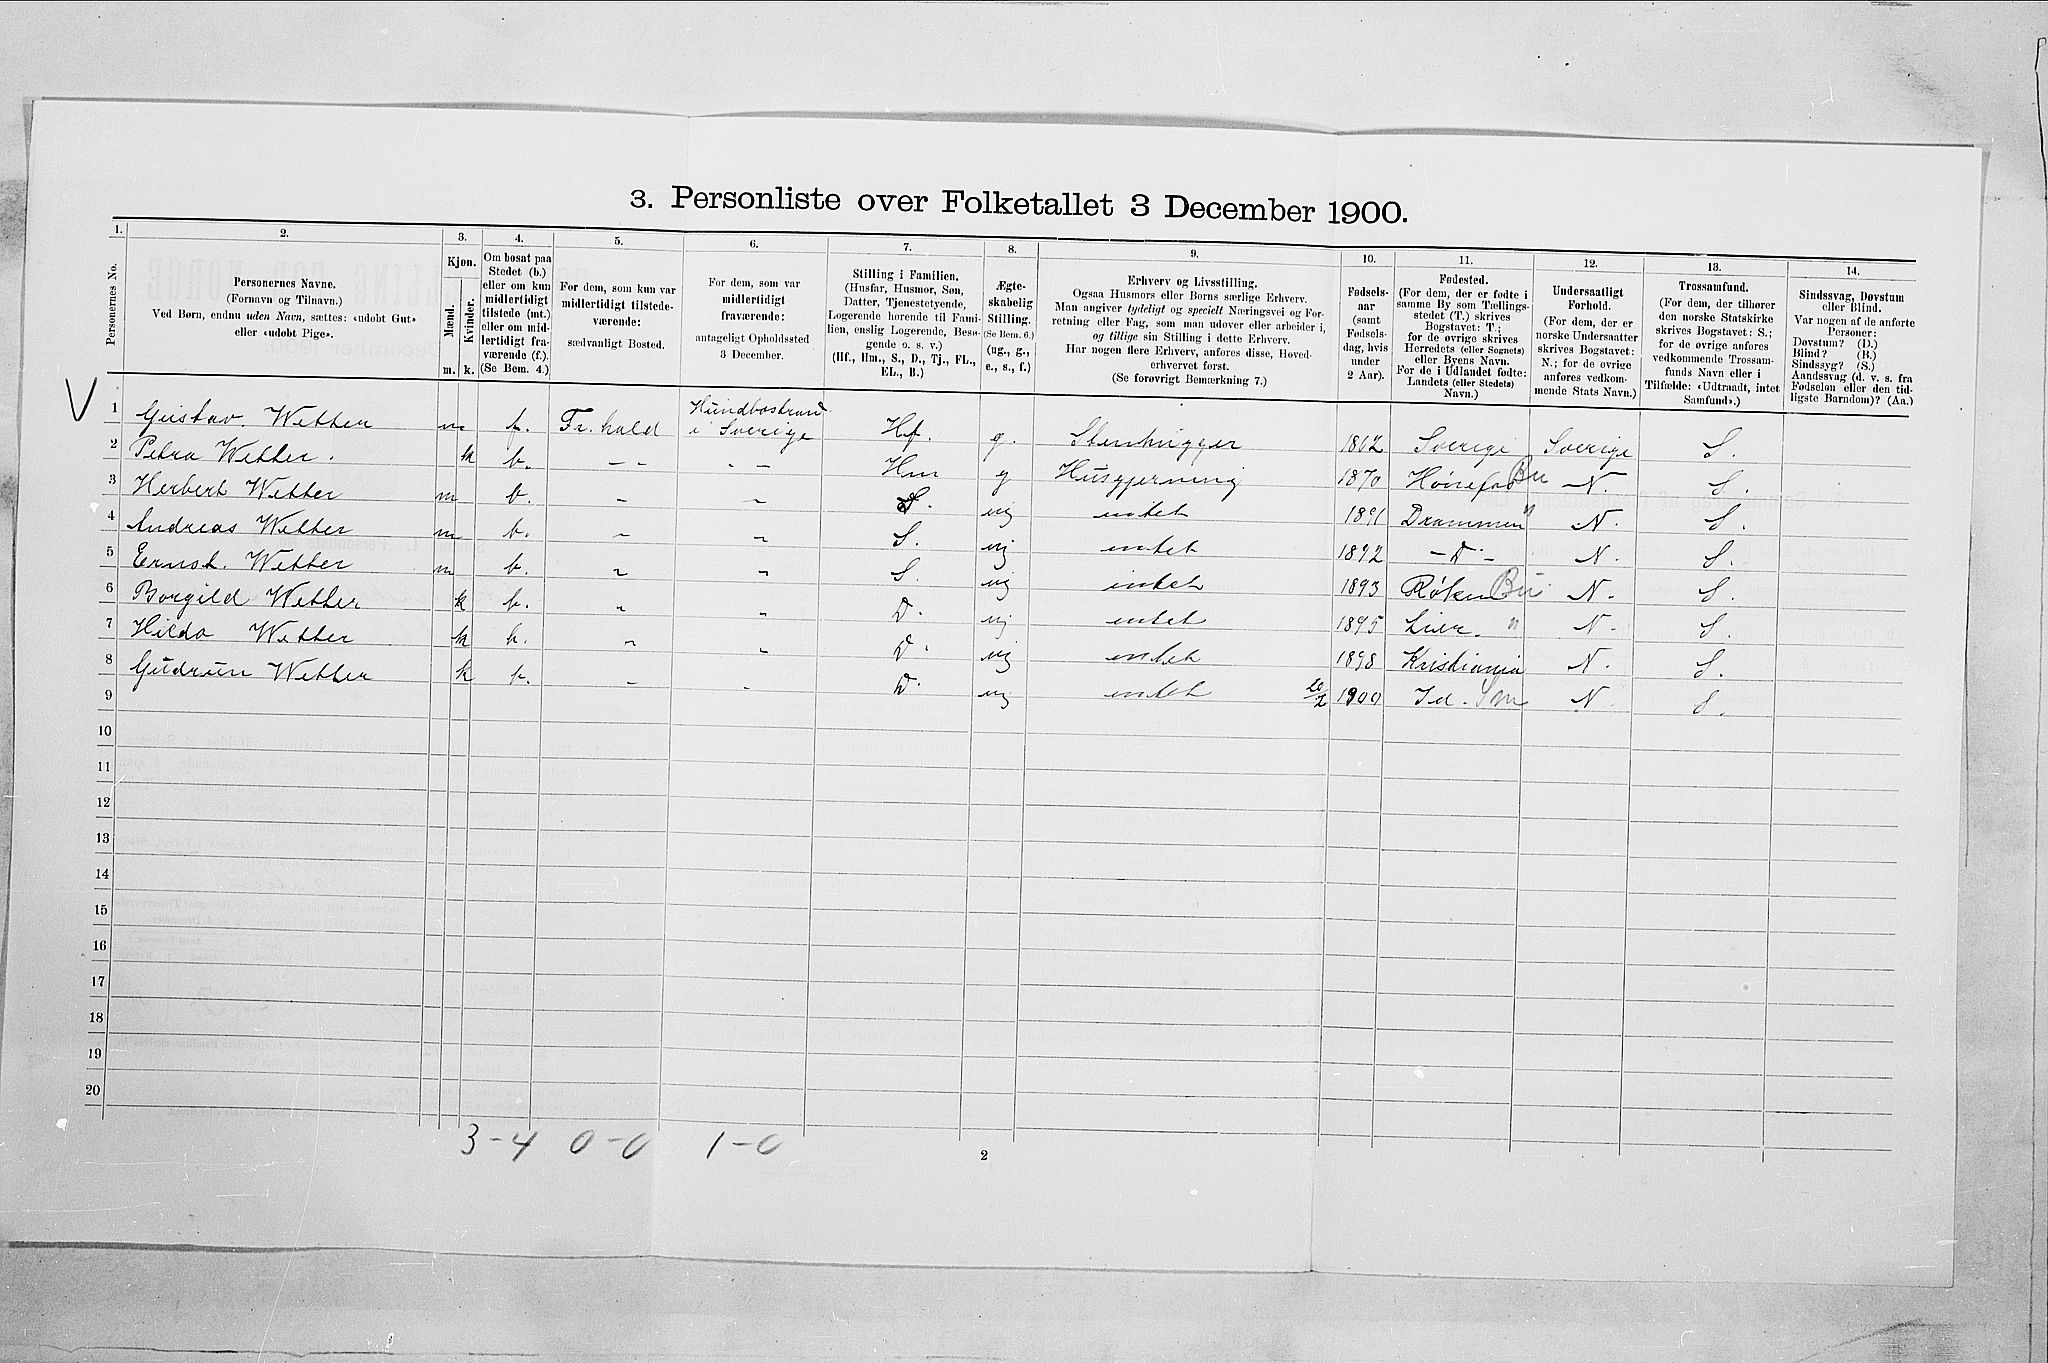 3. Personliste over Folketallet 3 December 1900.
1. 2. 3. 4. 5. 6. 7. 8. 9. 10. 11. 12. 13. 14.
Personernes No.
Personernes Navne.
(Fornavn og Tilnavn.)
Ved Børn, endnu uden Navn, sættes: «udobt Gut»
eller «udobt Pige».
Kjøn.
Mænd.
Kvinder.
m. k.
Om bosat paa
Stedet (b.)
eller om kun
midlertidigt
tilstede (mt.)
eller om mid-
lertidigt fra-
værende (f.).
(Se Bem. 4.)
For dem, som kun var
midlertidigt tilstede-
værende:
sædvanligt Bosted.
For dem, som var
midlertidigt
fraværende:
antageligt Opholdssted
3 December.
Stilling i Familien.
(Husfar, Husmor, Søn,
Datter, Tjenestetyende,
Logerende hørende til Fami-
lien, enslig Logerende, Besø-
gende o. s. v.)
(Hf., Hm., S., D., Tj., FL.,
EL., B.)
Ægte-
skabelig
Stilling.
(Se Bem. 6.)
(ug., g.,
e., s., f.)
Erhverv og Livsstilling.
Ogsaa Husmors eller Børns særlige Erhverv.
Man angiver tydeligt og specielt Næringsvei og For-
retning eller Fag, som man udover eller arbeider i,
og tillige sin Stilling i dette Erhverv.
Har nogen flere Erhverv, anføres disse, Hoved-
erhvervet først.
(Se forøvrigt Bemærkning 7.)
Fødsels-
aar
(samt
Fødsels-
dag, hvis
under
2 Aar).
Fødested.
(For dem, der er fødte i
samme By som Tællings-
stedet (T.) skrives
Bogstavet: T.;
for de øvrige skrives
Herredets (eller Sognets)
eller Byens Navn.
For de i Udlandet fødte:
Landets (eller Stedets)
Navn.)
Undersaatligt
Forhold.
(For dem, der er
norske Undersaatter
skrives Bogstavet:
N.; for de øvrige
anføres vedkom-
mende Stats Navn.)
Trossamfund.
(For dem, der tilhører
den norske Statskirke
skrives Bogstavet: S.;
for de øvrige anføres
vedkommende Trossam-
funds Navn eller i
Tilfælde: «Udtraadt, intet
Samfund».)
Sindssvag, Døvstum
eller Blind.
Var nogen af de anførte
Personer:
Døvstum? (D.)
Blind? (B.)
Sindssyg? (S.)
Aandssvag (d. v. s. fra
Fødselen eller den tid-
ligste Barndom)? (Aa.)
V
1 Gustav. Wetter m f. Fr.hald Hundbostrand i Sverige Hf. g. Stenhugger 1862 Sverige Sverige S.
2 Petra Wetter. k b. — Hm g Husgjerning 1870 Hønefos Bu N. S.
3 Herbert Wetter m b. " " S. ug intet 1891 Drammen " N. S.
4 Andreas Wetter m b. " " S. ug intet 1892 — D — N. S.
5 Ernst. Wetter m b. " " S. ug intet 1893 Røken Bu N. S.
6 Borgild Wetter k b. " " D. ug intet 1895 Lier. " N. S.
7 Hilda Wetter k b. " " D. ug intet 1898 Kristiania N. S.
8 Gudrun Wetter k b. " " D. ug intet 20/2 1900 Id. Sm N. S.
9
10
11
12
13
14
15
16
17
18
19
20
3-4 0-0 1-0
2